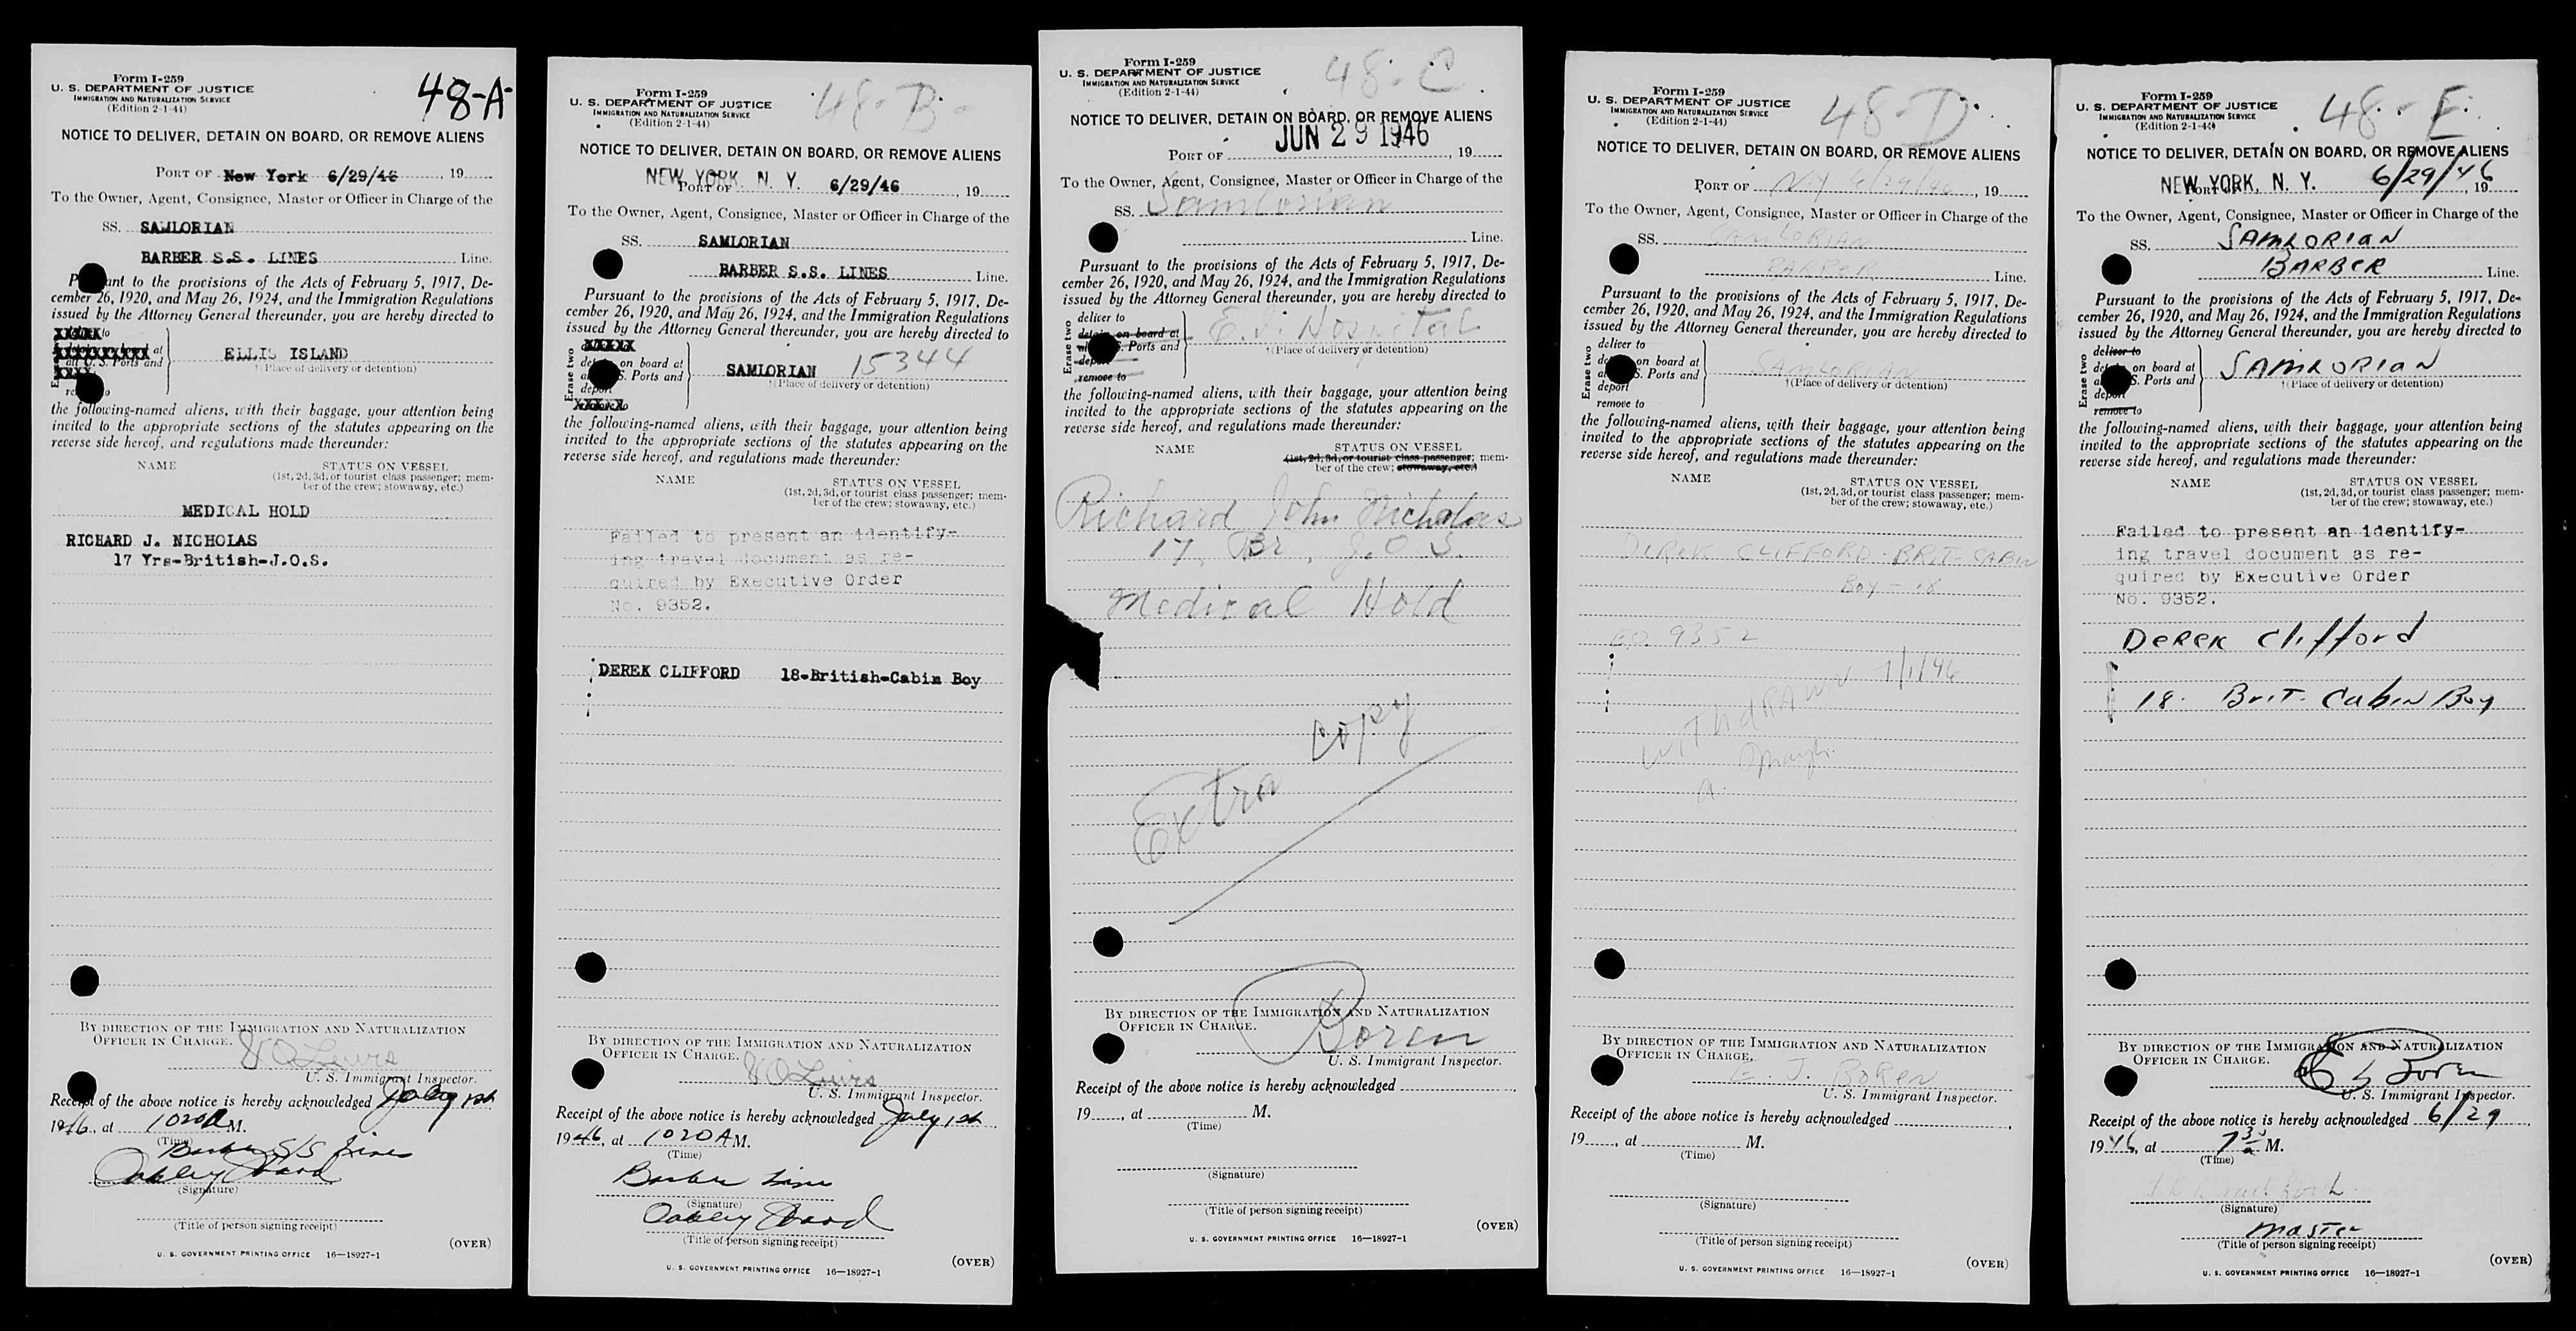 Form I-259
U. S. DEPARTMENT OF JUSTICE
IMMIGRATION AND NATURALIZATION SERVICE
(Edition 2-1-44)
48-A-
NOTICE TO DELIVER, DETAIN ON BOARD, OR REMOVE ALIENS
PORT OF New York 6/29/46, 19
To the Owner, Agent, Consignee, Master or Officer in Charge of the
SS. SAMLORIAN
BARBER S.S. LINES Line.
P ant to the provisions of the Acts of February 5, 1917, De-
cember 26, 1920, and May 26, 1924, and the Immigration Regulations
issued by the Attorney General thereunder, you are hereby directed to
XXXXX to
XXXXXXXXXX at
all U. S. Ports and
XXXX
ELLIS ISLAND
†(Place of delivery or detention)
the following-named aliens, with their baggage, your attention being
invited to the appropriate sections of the statutes appearing on the
reverse side hereof, and regulations made thereunder:
NAME STATUS ON VESSEL
(1st, 2d, 3d, or tourist class passenger; mem-
ber of the crew; stowaway, etc.)
MEDICAL HOLD
RICHARD J. NICHOLAS
17 Yrs-British-J.O.S.
BY DIRECTION OF THE IMMIGRATION AND NATURALIZATION
OFFICER IN CHARGE.
U. S. Immigrant Inspector.
Receipt of the above notice is hereby acknowledged July 1st
1946, at 1020 A M.
(Time)
Barber S/S Lines
Oakley Ward
(Signature)
(Title of person signing receipt)
(OVER)
U. S. GOVERNMENT PRINTING OFFICE 16—18927-1
Form I-259
U. S. DEPARTMENT OF JUSTICE
IMMIGRATION AND NATURALIZATION SERVICE
(Edition 2-1-44)
48-B-
NOTICE TO DELIVER, DETAIN ON BOARD, OR REMOVE ALIENS
PORT OF NEW YORK, N. Y. 6/29/46, 19
To the Owner, Agent, Consignee, Master or Officer in Charge of the
SS. SAMLORIAN
BARBER S.S. LINES Line.
Pursuant to the provisions of the Acts of February 5, 1917, De-
cember 26, 1920, and May 26, 1924, and the Immigration Regulations
issued by the Attorney General thereunder, you are hereby directed to
Erase two
XXXXX
on board at
S. Ports and
deport
XXXXX
SAMLORIAN 15344
†(Place of delivery or detention)
the following-named aliens, with their baggage, your attention being
invited to the appropriate sections of the statutes appearing on the
reverse side hereof, and regulations made thereunder:
NAME STATUS ON VESSEL
(1st, 2d, 3d, or tourist class passenger; mem-
ber of the crew; stowaway, etc.)
Failed to present an identify-
ing travel document as re-
quired by Executive Order
No. 9352.
DEREK CLIFFORD 18-British-Cabin Boy
BY DIRECTION OF THE IMMIGRATION AND NATURALIZATION
OFFICER IN CHARGE.
U. S. Immigrant Inspector.
Receipt of the above notice is hereby acknowledged July 1st
1946, at 1020 A M.
(Time)
Barber Line
(Signature)
Oakley Ward
(Title of person signing receipt)
(OVER)
U. S. GOVERNMENT PRINTING OFFICE 16—18927-1
Form I-259
U. S. DEPARTMENT OF JUSTICE
IMMIGRATION AND NATURALIZATION SERVICE
(Edition 2-1-44)
48-C
NOTICE TO DELIVER, DETAIN ON BOARD, OR REMOVE ALIENS
JUN 29 1946
PORT OF , 19
To the Owner, Agent, Consignee, Master or Officer in Charge of the
SS. Samlorian
Line.
Pursuant to the provisions of the Acts of February 5, 1917, De-
cember 26, 1920, and May 26, 1924, and the Immigration Regulations
issued by the Attorney General thereunder, you are hereby directed to
Erase two
deliver to
detain on board at
S. Ports and
deport
remove to
E. I. Hospital
†(Place of delivery or detention)
the following-named aliens, with their baggage, your attention being
invited to the appropriate sections of the statutes appearing on the
reverse side hereof, and regulations made thereunder:
NAME STATUS ON VESSEL
(1st, 2d, 3d, or tourist class passenger; mem-
ber of the crew; stowaway, etc.)
Richard John Nicholas
17, Br, J.O.S.
Medical Hold
Extra copy
BY DIRECTION OF THE IMMIGRATION AND NATURALIZATION
OFFICER IN CHARGE.
Boren
U. S. Immigrant Inspector.
Receipt of the above notice is hereby acknowledged
19 , at M.
(Time)
(Signature)
(Title of person signing receipt)
(OVER)
U. S. GOVERNMENT PRINTING OFFICE 16—18927-1
Form I-259
U. S. DEPARTMENT OF JUSTICE
IMMIGRATION AND NATURALIZATION SERVICE
(Edition 2-1-44)
48-D
NOTICE TO DELIVER, DETAIN ON BOARD, OR REMOVE ALIENS
PORT OF N.Y 6/29/46, 19
To the Owner, Agent, Consignee, Master or Officer in Charge of the
SS. SAMLORIAN
BARBER Line.
Pursuant to the provisions of the Acts of February 5, 1917, De-
cember 26, 1920, and May 26, 1924, and the Immigration Regulations
issued by the Attorney General thereunder, you are hereby directed to
Erase two
deliver to
on board at
S. Ports and
deport
remove to
SAMLORIAN
†(Place of delivery or detention)
the following-named aliens, with their baggage, your attention being
invited to the appropriate sections of the statutes appearing on the
reverse side hereof, and regulations made thereunder:
NAME STATUS ON VESSEL
(1st, 2d, 3d, or tourist class passenger; mem-
ber of the crew; stowaway, etc.)
DEREK CLIFFORD - BRIT-CABIN
Boy - 18
E.O. 9352
WITHDRAWN 7/1/46
BY DIRECTION OF THE IMMIGRATION AND NATURALIZATION
OFFICER IN CHARGE.
E. J. BOREN
U. S. Immigrant Inspector.
Receipt of the above notice is hereby acknowledged
19 , at M.
(Time)
(Signature)
(Title of person signing receipt)
(OVER)
U. S. GOVERNMENT PRINTING OFFICE 16—18927-1
Form I-259
U. S. DEPARTMENT OF JUSTICE
IMMIGRATION AND NATURALIZATION SERVICE
(Edition 2-1-44)
48-E
NOTICE TO DELIVER, DETAIN ON BOARD, OR REMOVE ALIENS
NEW YORK, N. Y. 6/29/46, 19
To the Owner, Agent, Consignee, Master or Officer in Charge of the
SS. SAMLORIAN
BARBER Line.
Pursuant to the provisions of the Acts of February 5, 1917, De-
cember 26, 1920, and May 26, 1924, and the Immigration Regulations
issued by the Attorney General thereunder, you are hereby directed to
Erase two
deliver to
on board at
S. Ports and
deport
remove to
SAMLORIAN
†(Place of delivery or detention)
the following-named aliens, with their baggage, your attention being
invited to the appropriate sections of the statutes appearing on the
reverse side hereof, and regulations made thereunder:
NAME STATUS ON VESSEL
(1st, 2d, 3d, or tourist class passenger; mem-
ber of the crew; stowaway, etc.)
Failed to present an identify-
ing travel document as re-
quired by Executive Order
No. 9352.
DEREK Clifford
18. Brit. Cabin Boy
BY DIRECTION OF THE IMMIGRATION AND NATURALIZATION
OFFICER IN CHARGE.
E J Boren
U. S. Immigrant Inspector.
Receipt of the above notice is hereby acknowledged 6/29
1946, at 7 30 a M.
(Time)
(Signature)
Master
(Title of person signing receipt)
(OVER)
U. S. GOVERNMENT PRINTING OFFICE 16—18927-1